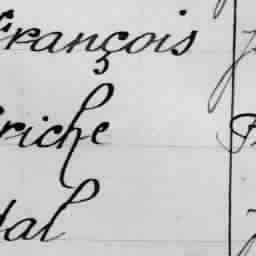 François
riche
dal